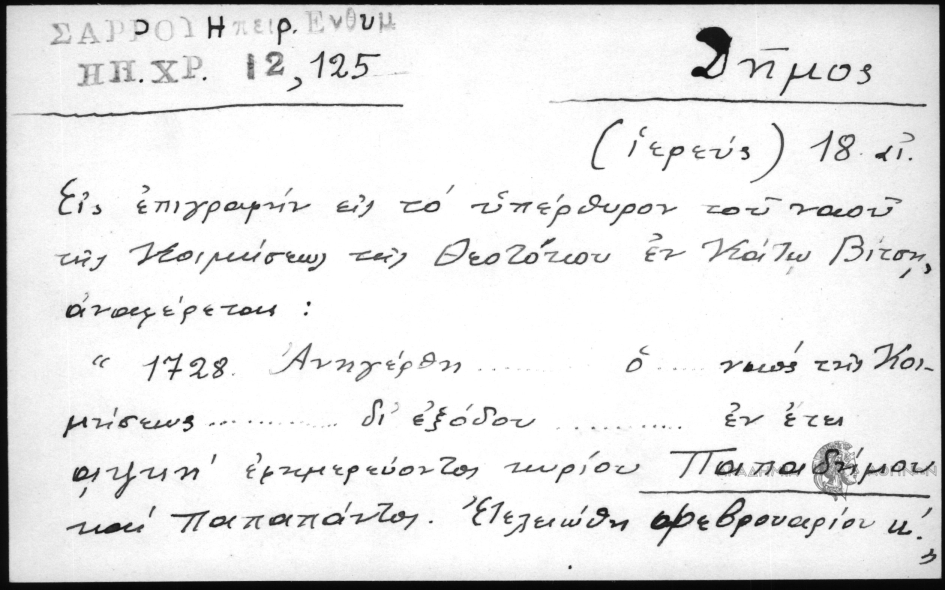 ΣΑΡΡΟΥ Ηπειρ. Ενθυμ
ΗΠ. ΧΡ. 12, 125
Δῆμος
(ἱερεύς) 18 αἰ.
Εἰς ἐπιγραφήν εἰς τό ὑπέρθυρον τοῦ ναοῦ
τῆς Κοιμήσεως τῆς Θεοτόκου ἐν Κάτω Βίτσῃ,
ἀναφέρεται :
“ 1728. Ἀνηγέρθη ......... ὁ ..... ναός τῆς Κοι-
μήσεως .............. δι' ἐξόδου ............ ἐν ἔτει
αψκη' ἐφημερεύοντος κυρίου Παπαδήμου
καί Παπαπάντος. Ἐτελειώθη φεβρουαρίου κ΄. „